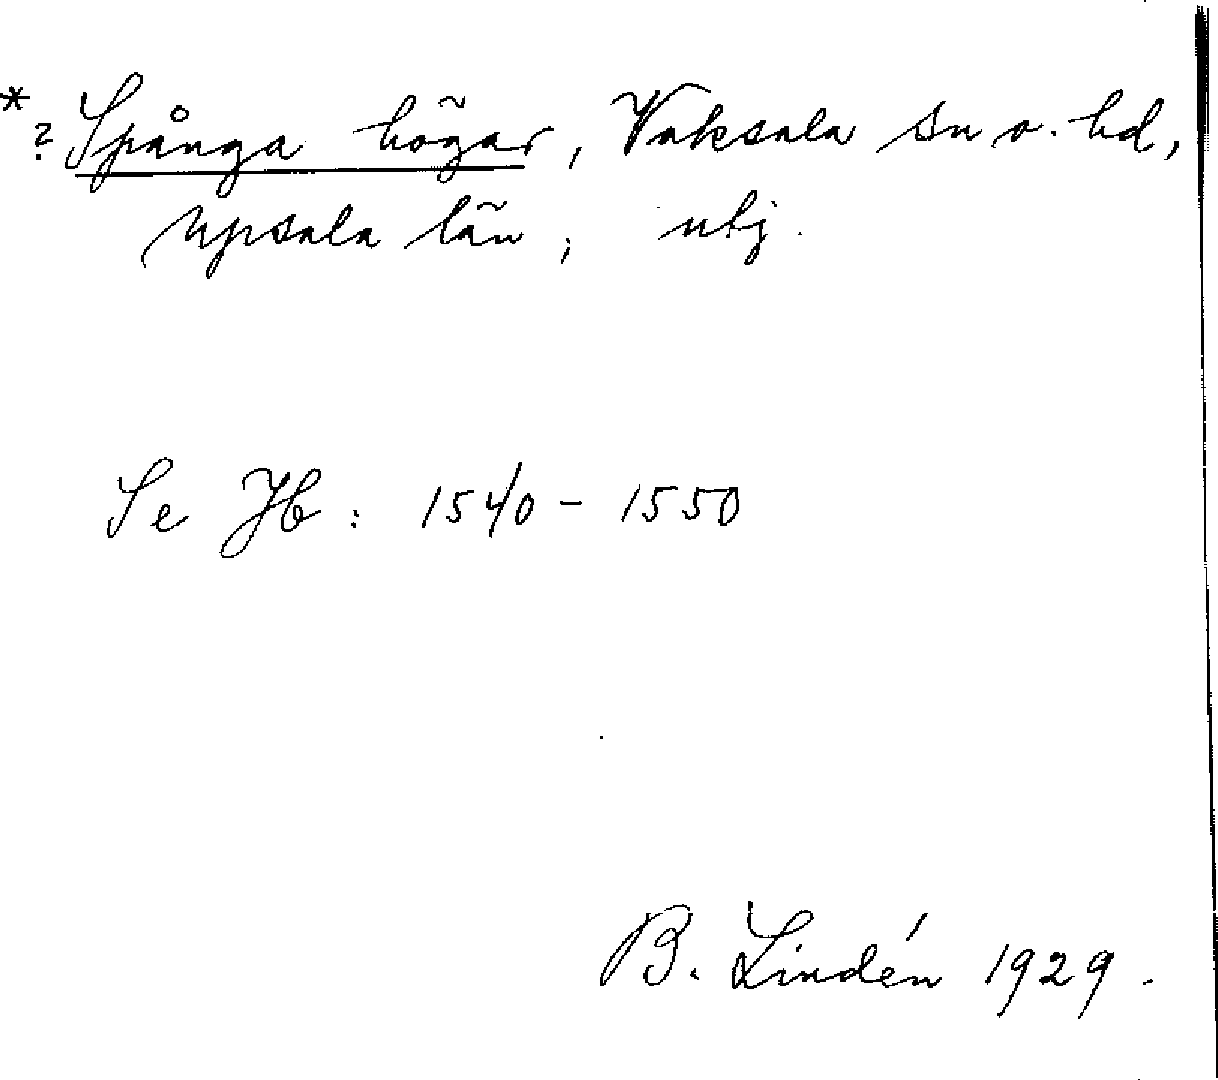 *? Spånga högar, Vaksala sn o. hd,
Upsala län; ubj.
Se Jb: 1540-1550
B. Lindén 1929.